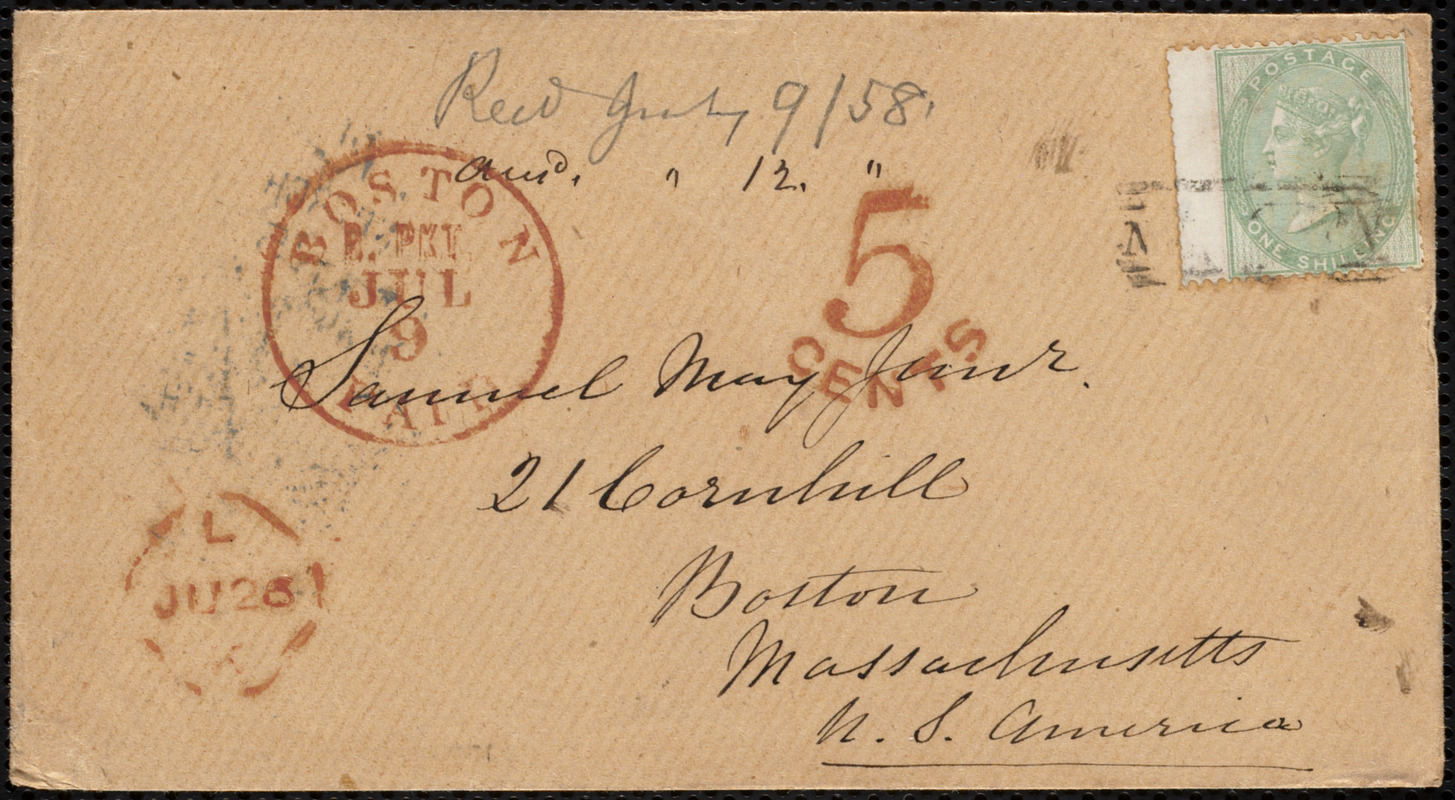 Recd July 9/58.
ansd. " 12. "
POSTAGE
ONE SHILLING
BOSTON
B. PKT.
JUL
9
PAID
5
CENTS
Samuel May Junr.
21 Cornhill
Boston
Massachusetts
U. S. America
L
JU 26